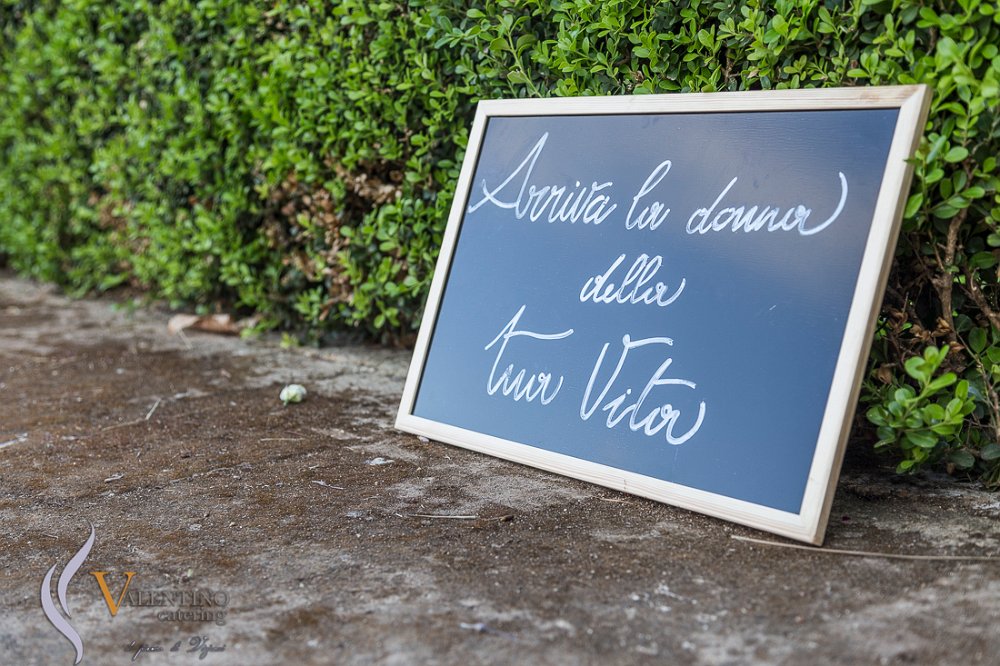 Arriva la donna
della
tua Vita
VALENTINO
catering